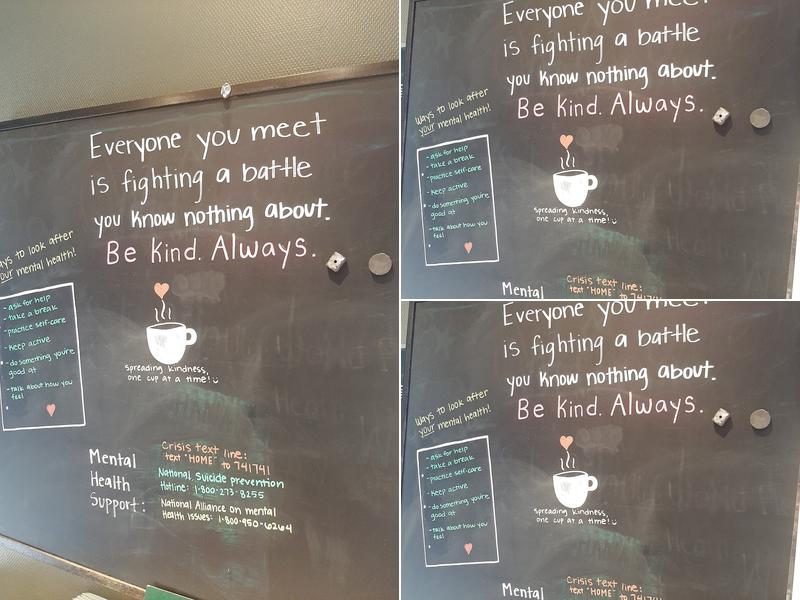 Everyone you meet
is fighting a battle
you know nothing about.
Be kind. Always.
ways to look after
your mental health!
- ask for help
- take a break
- practice self-care
- Keep active
- do something you're
good at
- talk about how you
feel
Spreading kindness,
one cup at a time!
Mental
Health
Support:
Crisis text line:
text "HOME" to 741741
National Suicide prevention
Hotline: 1-800-273-8255
National Alliance on mental
Health issues: 1-800-950-6264
Everyone you meet
is fighting a battle
you know nothing about.
Be kind. Always.
ways to look after
your mental health!
- ask for help
- take a break
- practice self-care
- Keep active
- do something you're
good at
- talk about how you
feel
Spreading kindness,
one cup at a time!
Mental
Crisis text line:
text "HOME" to 741741
Everyone you meet
is fighting a battle
you know nothing about.
Be kind. Always.
ways to look after
your mental health!
- ask for help
- take a break
- practice self-care
- Keep active
- do something you're
good at
- talk about how you
feel
Spreading kindness,
one cup at a time!
Mental
Crisis text line:
text "HOME" to 741741